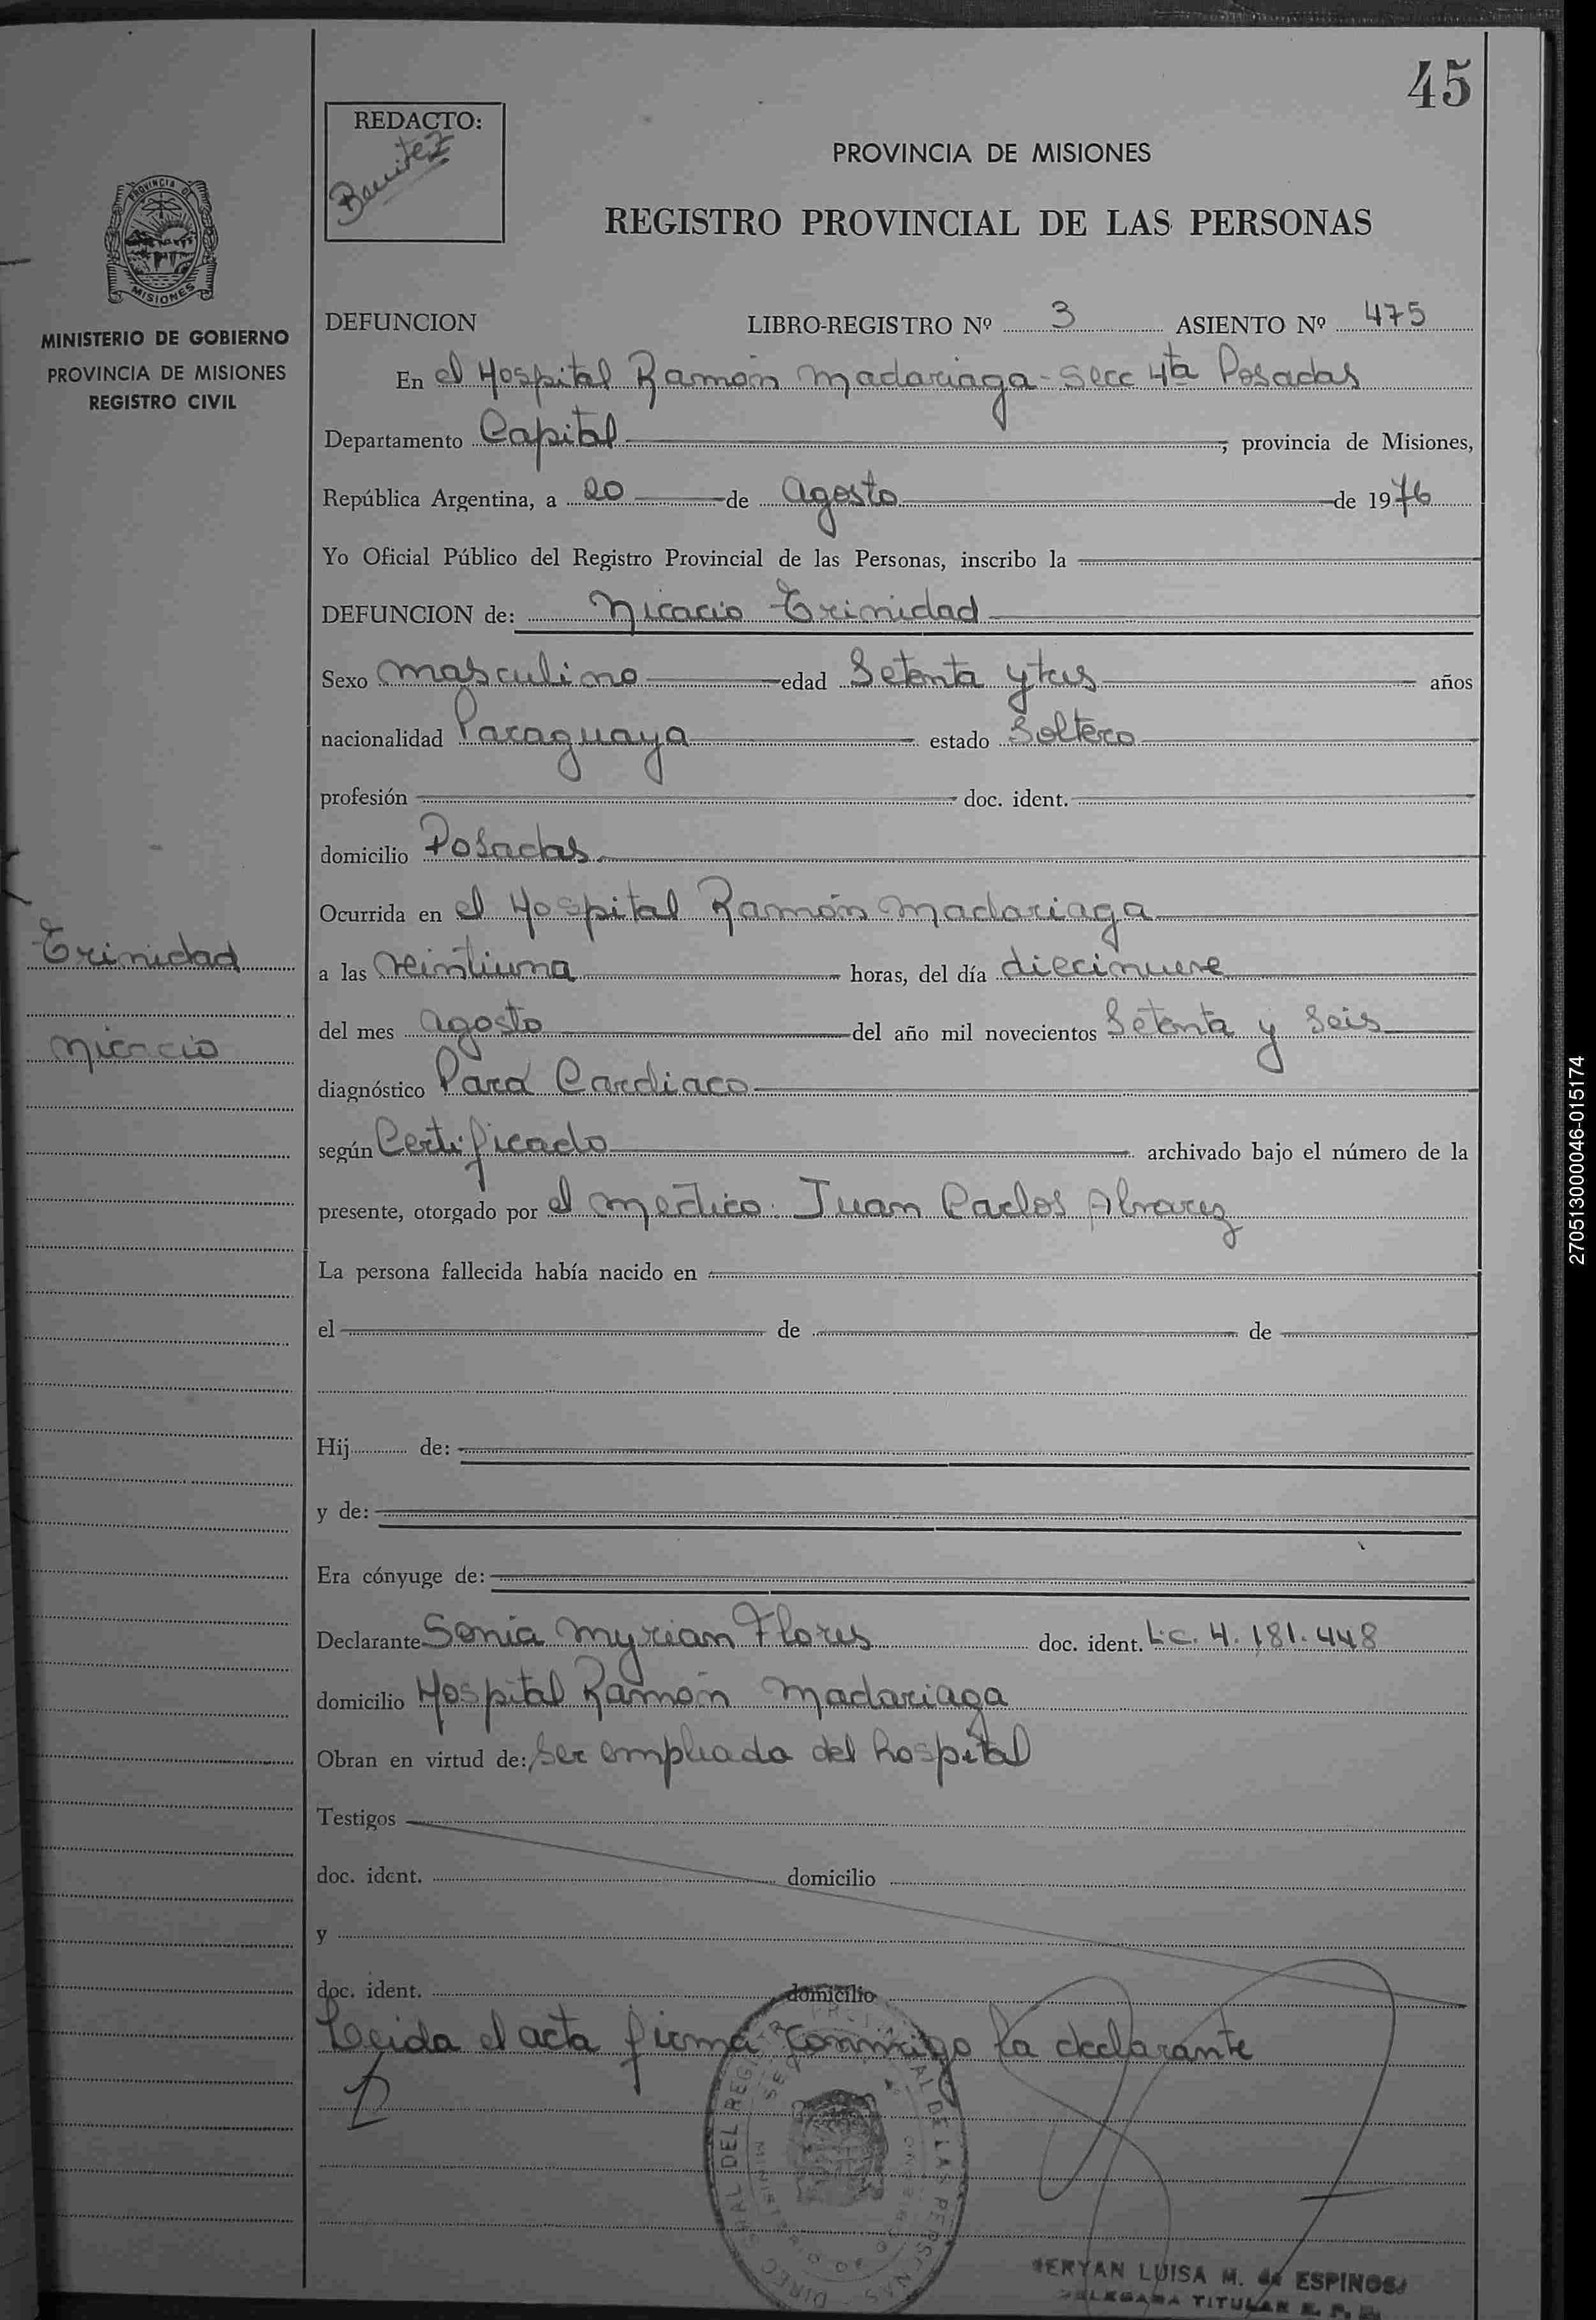 45
REDACTO:
Benitez
PROVINCIA DE MISIONES
REGISTRO PROVINCIAL DE LAS PERSONAS
PROVINCIA DE
MISIONES
MINISTERIO DE GOBIERNO
PROVINCIA DE MISIONES
REGISTRO CIVIL
DEFUNCION LIBRO-REGISTRO Nº 3 ASIENTO Nº 475
En el Hospital Ramón Madariaga - Secc 4ta Posadas
Departamento Capital ; provincia de Misiones,
República Argentina, a 20 de Agosto de 1976
Yo Oficial Público del Registro Provincial de las Personas, inscribo la
DEFUNCION de: Nicacio Trinidad
Sexo masculino edad Setenta y tres años
nacionalidad Paraguaya estado Soltero
profesión doc. ident.
domicilio Posadas
Ocurrida en el Hospital Ramón Madariaga
Trinidad
a las veintiuna horas, del día diecinueve
Nicacio
del mes agosto del año mil novecientos Setenta y Seis
diagnóstico Paro Cardiaco
según Certificado archivado bajo el número de la
presente, otorgado por el medico: Juan Carlos Alvarez
La persona fallecida había nacido en
el de de
Hij de:
y de:
Era cónyuge de:
Declarante Sonia Myrian Flores doc. ident. L.C. 4.181.448
domicilio Hospital Ramón Madariaga
Obran en virtud de: Ser empleada del hospital
Testigos
doc. ident. domicilio
y
doc. ident. domicilio
Leida el acta firma conmigo la declarante
LUISA M. de ESPINOSA
DELEGADA TITULAR R. P. P.
27051300046-015174